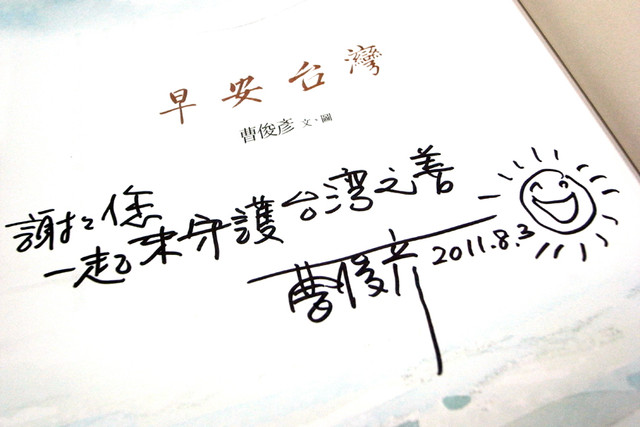 早安台灣
曹俊彥 文、圖
謝謝您
一起來守護台灣之善
曹俊彥 2011.8.3